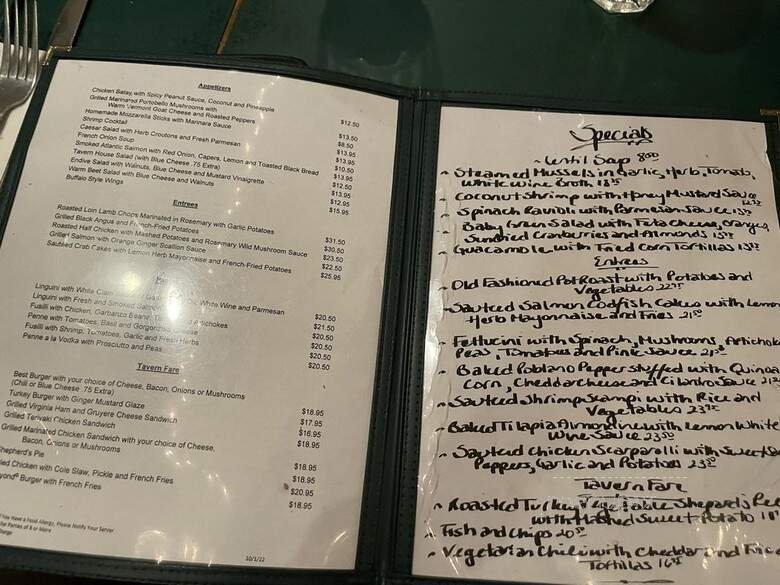 Appetizers
Chicken Satay, with Spicy Peanut Sauce, Coconut and Pineapple
Grilled Marinated Portobello Mushrooms with
Warm Vermont Goat Cheese and Roasted Peppers
Homemade Mozzarella Sticks with Marinara Sauce
Shrimp Cocktail
Caesar Salad with Herb Croutons and Fresh Parmesan
French Onion Soup
Smoked Atlantic Salmon with Red Onion, Capers, Lemon and Toasted Black Bread
Tavern House Salad (with Blue Cheese .75 Extra)
Endive Salad with Walnuts, Blue Cheese and Mustard Vinaigrette
Warm Beet Salad with Blue Cheese and Walnuts
Buffalo Style Wings
$12.50
$13.50
$8.50
$13.95
$13.95
$10.50
$13.95
$12.50
$13.95
$12.95
$15.95
Entrees
Roasted Loin Lamb Chops Marinated in Rosemary with Garlic Potatoes
Grilled Black Angus and French-Fried Potatoes
Roasted Half Chicken with Mashed Potatoes and Rosemary Wild Mushroom Sauce
Grilled Salmon with Orange Ginger Scallion Sauce
Sautéed Crab Cakes with Lemon Herb Mayonnaise and French-Fried Potatoes
$31.50
$30.50
$23.50
$22.50
$25.95
Linguini with White Clam White Wine and Parmesan
Linguini with Fresh and Smoked Salmon
Fusilli with Chicken, Garbanzo Beans, Artichokes
Penne with Tomatoes, Basil and Gorgonzola Cheese
Fusilli with Shrimp, Tomatoes, Garlic and Fresh Herbs
Penne a la Vodka with Prosciutto and Peas
$20.50
$21.50
$20.50
$20.50
$20.50
$20.50
Tavern Fare
Best Burger with your choice of Cheese, Bacon, Onions or Mushrooms
(Chili or Blue Cheese .75 Extra)
Turkey Burger with Ginger Mustard Glaze
Grilled Virginia Ham and Gruyere Cheese Sandwich
Grilled Teriyaki Chicken Sandwich
Grilled Marinated Chicken Sandwich with your choice of Cheese,
Bacon, Onions or Mushrooms
Shepherd's Pie
ied Chicken with Cole Slaw, Pickle and French Fries
yond® Burger with French Fries
$18.95
$17.95
$16.95
$18.95
$18.95
$18.95
$20.95
$18.95
You Have a Food Allergy, Please Notify Your Server
for Parties of 6 or More
10/1/22
Specials
~ Lentil Soup 8.00
~ Steamed Mussels in Garlic, Herb, Tomato,
White Wine Broth
~ Coconut Shrimp with Honey Mustard Sauce
~ Spinach Ravioli with Parmesan Sauce
~ Baby Green Salad with Feta Cheese, Oranges,
Sundried Cranberries and Almonds
~ Guacamole with Fried Corn Tortillas
Entrees
~ Old Fashioned Pot Roast with Potatoes and
Vegetables
~ Sauteed Salmon Codfish Cakes with Lemon
Herb Mayonnaise and Fries
~ Fettucini with Spinach, Mushrooms, Artichoke
Peas, Tomatoes and Pink Sauce
~ Baked Poblano Pepper stuffed with Quinoa
Corn, Cheddar cheese and Cilantro Sauce
~ Sauteed Shrimp Scampi with Rice and
Vegetables
~ Baked Tilapia Almondine with Lemon White
Wine Sauce 23.50
~ Sauteed Chicken Scarparolli with Sweet
Peppers, Garlic and Potatoes
Tavern Fare
~ Roasted Turkey Vegetable Shepards Pie
with Mashed Sweet Potato
~ Fish and Chips
~ Vegetarian Chili with Cheddar and
Tortillas